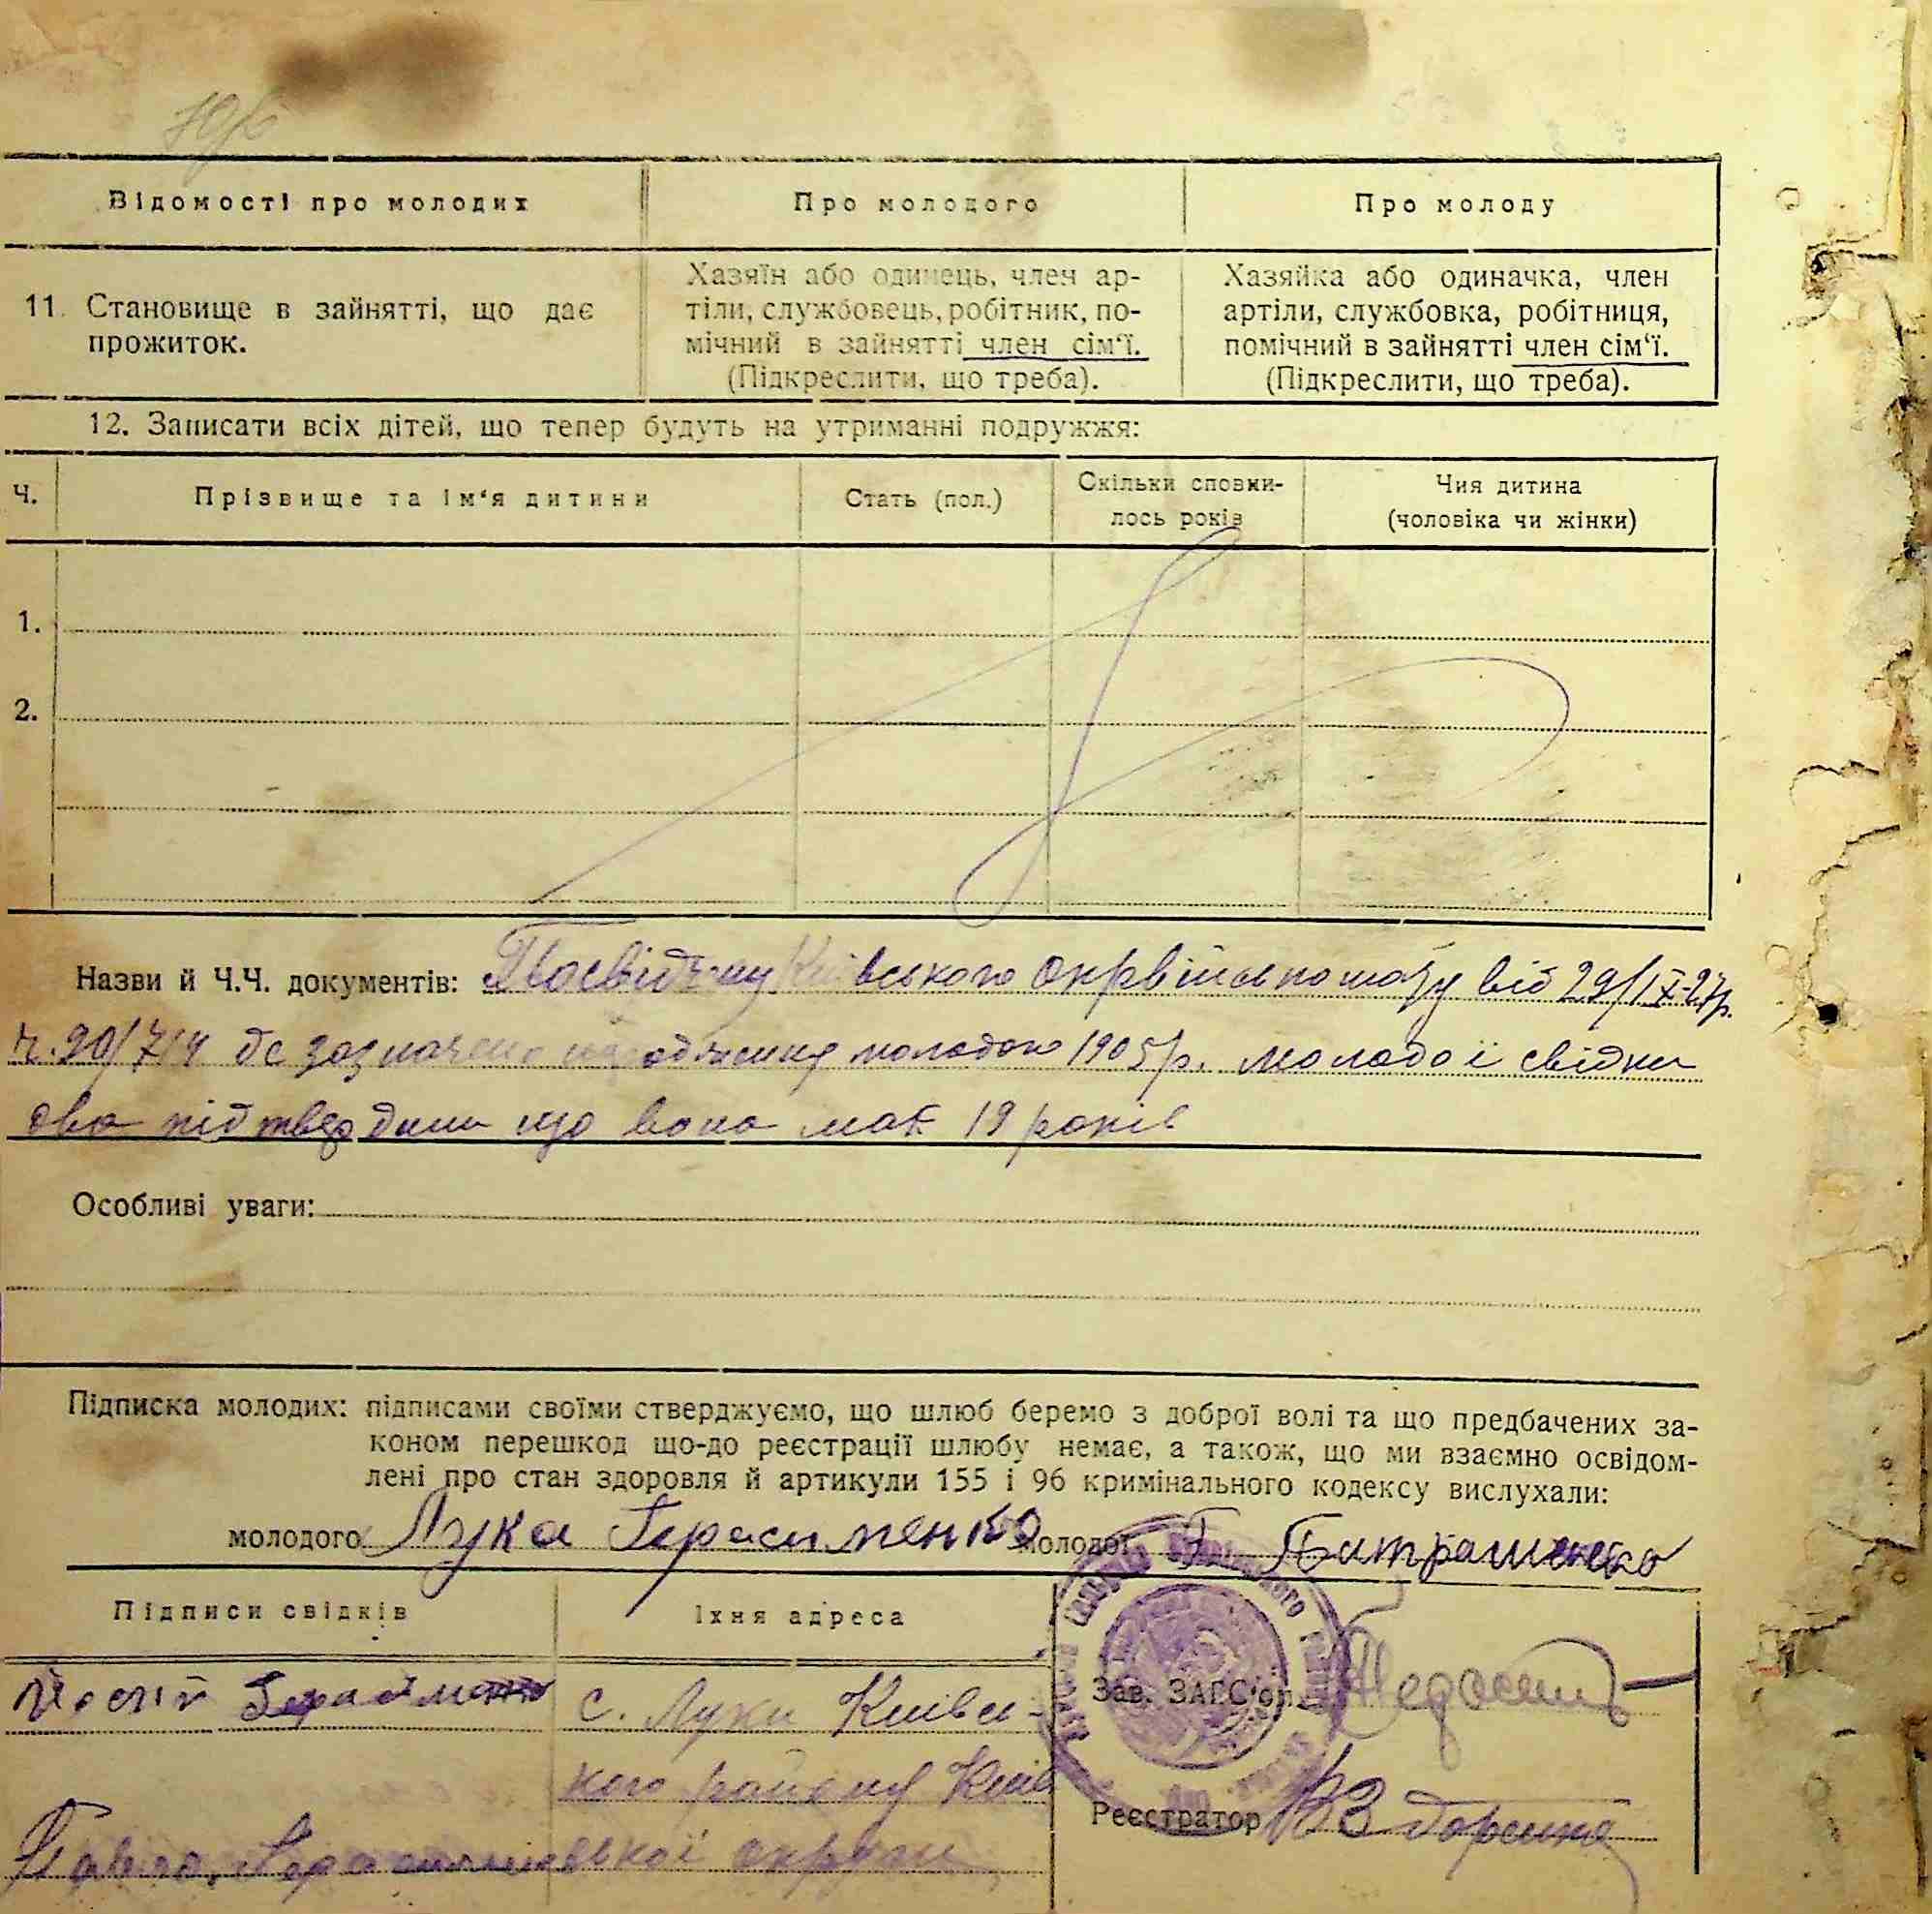 Відомості про молодих
Про молодого
Про молоду
11. Становище в зайнятті, що дає
прожиток.
Хазяїн або одинець, член ар-
тіли, службовець, робітник, по-
мічний в зайнятті член сім‘ї.
(Підкреслити, що треба).
Хазяйка або одиначка, член
артіли, службовка, робітниця,
помічний в зайнятті член сім‘ї.
(Підкреслити, що треба).
12. Записати всіх дітей, що тепер будуть на утриманні подружжя:
Ч.
Прізвище та ім‘я дитини
Стать (пол.)
Скільки сповни-
лось років
Чия дитина
(чоловіка чи жінки)
1.
2.
Назви й Ч.Ч. документів: вського від 29/IX-27р.
де зазначено молодого 1905 р. молодої свідки
два підтвердили що вона має 19 років
Особливі уваги:
Підписка молодих: підписами своїми стверджуємо, що шлюб беремо з доброї волі та що предбачених за-
коном перешкод що-до реєстрації шлюбу немає, а також, що ми взаємно освідом-
лені про стан здоровля й артикули 155 і 96 кримінального кодексу вислухали:
молодого Лука Герасименко молодої
Підписи свідків
Їхня адреса
с. Луки Київсь-
кого району Київ
ської округи
Зав. ЗАГС‘ом
Реєстратор